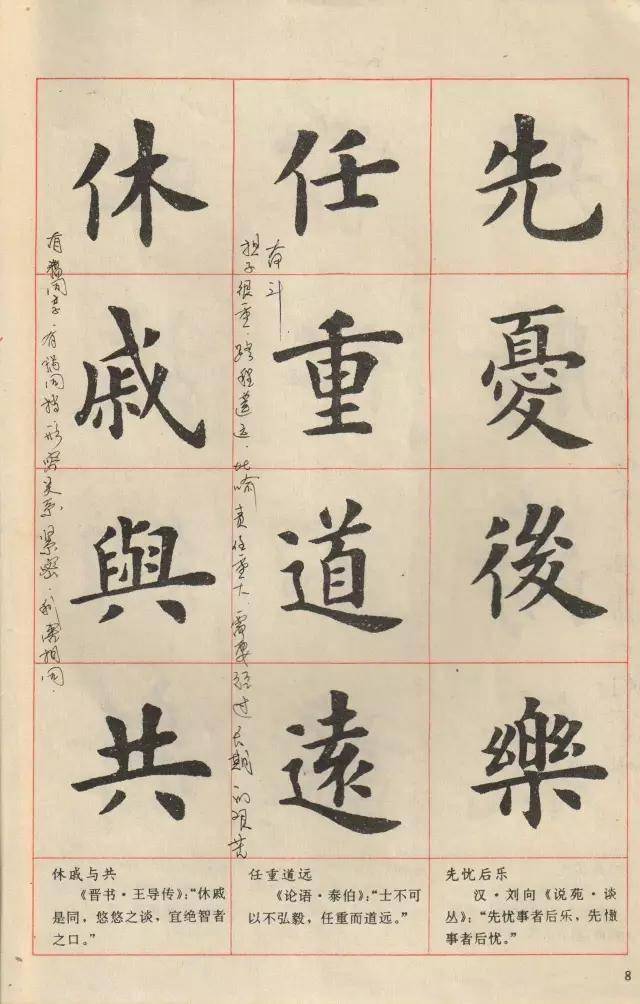 先憂後樂
任重道遠
休戚與共
有福同享·有祸同挡·形容关系紧密·利害相同·
担子很重·路程遥远·比喻责任重大·需要经过长期的艰苦
奋斗
休戚与共
《晋书·王导传》：“休戚
是同，悠悠之谈，宜绝智者
之口。”
任重道远
《论语·泰伯》：“士不可
以不弘毅，任重而道远。”
先忧后乐
汉·刘向《说苑·谈
丛》：“先忧事者后乐，先憿
事者后忧。”
8